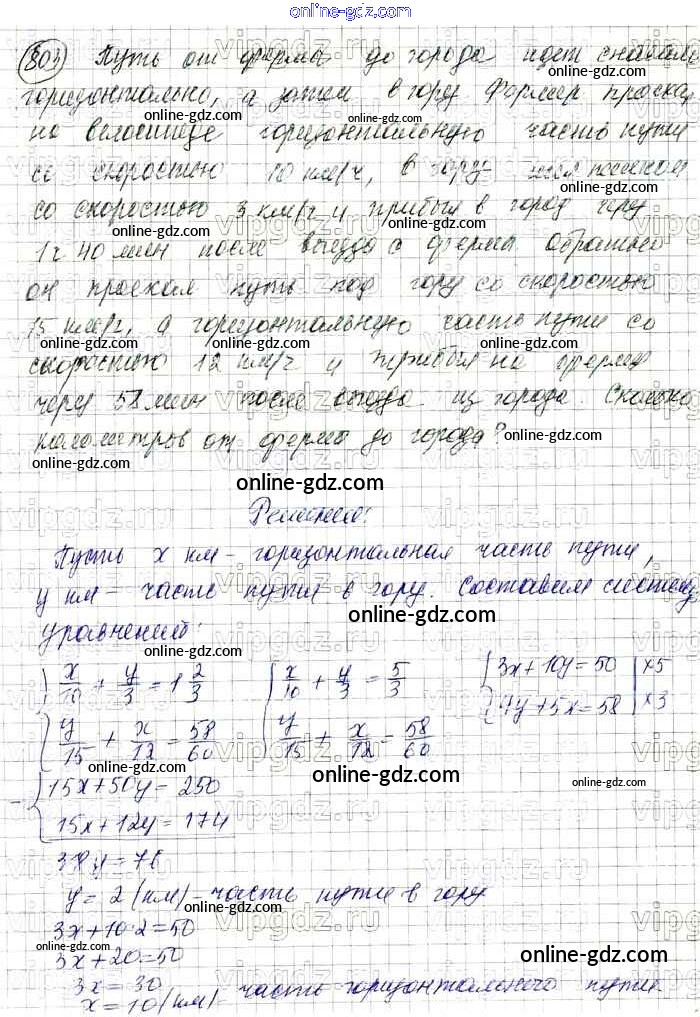 online-gdz.com
803 Путь от фермы до города идет сначала
горизонтально, а затем в гору Фермер проехал
на велосипеде горизонтальную часть пути
со скоростью 10 км/ч, в гору - шел пешком
со скоростью 3 км/ч и прибыл в город через
1 ч 40 мин после выезда с фермы Обратно
он проехал путь под гору со скоростью
15 км/ч, а горизонтальную часть пути со
скоростью 12 км/ч и прибыл на ферму
через 58 мин после выезда из города. Сколько
километров от фермы до города?
Решение:
Пусть x км - горизонтальная часть пути,
y км - часть пути в гору. Составим систему
уравнений:
x/10 + y/3 = 1 2/3 x/10 + y/3 = 5/3 3x + 10y = 50 | ×5
y/15 + x/12 = 58/60 y/15 + x/12 = 58/60 4y + 5x = 58 | ×3
- 15x + 50y = 250
15x + 12y = 174
38y = 76
y = 2 (км) - часть пути в гору
3x + 10·2 = 50
3x + 20 = 50
3x = 30
x = 10 (км) - часть горизонтального пути